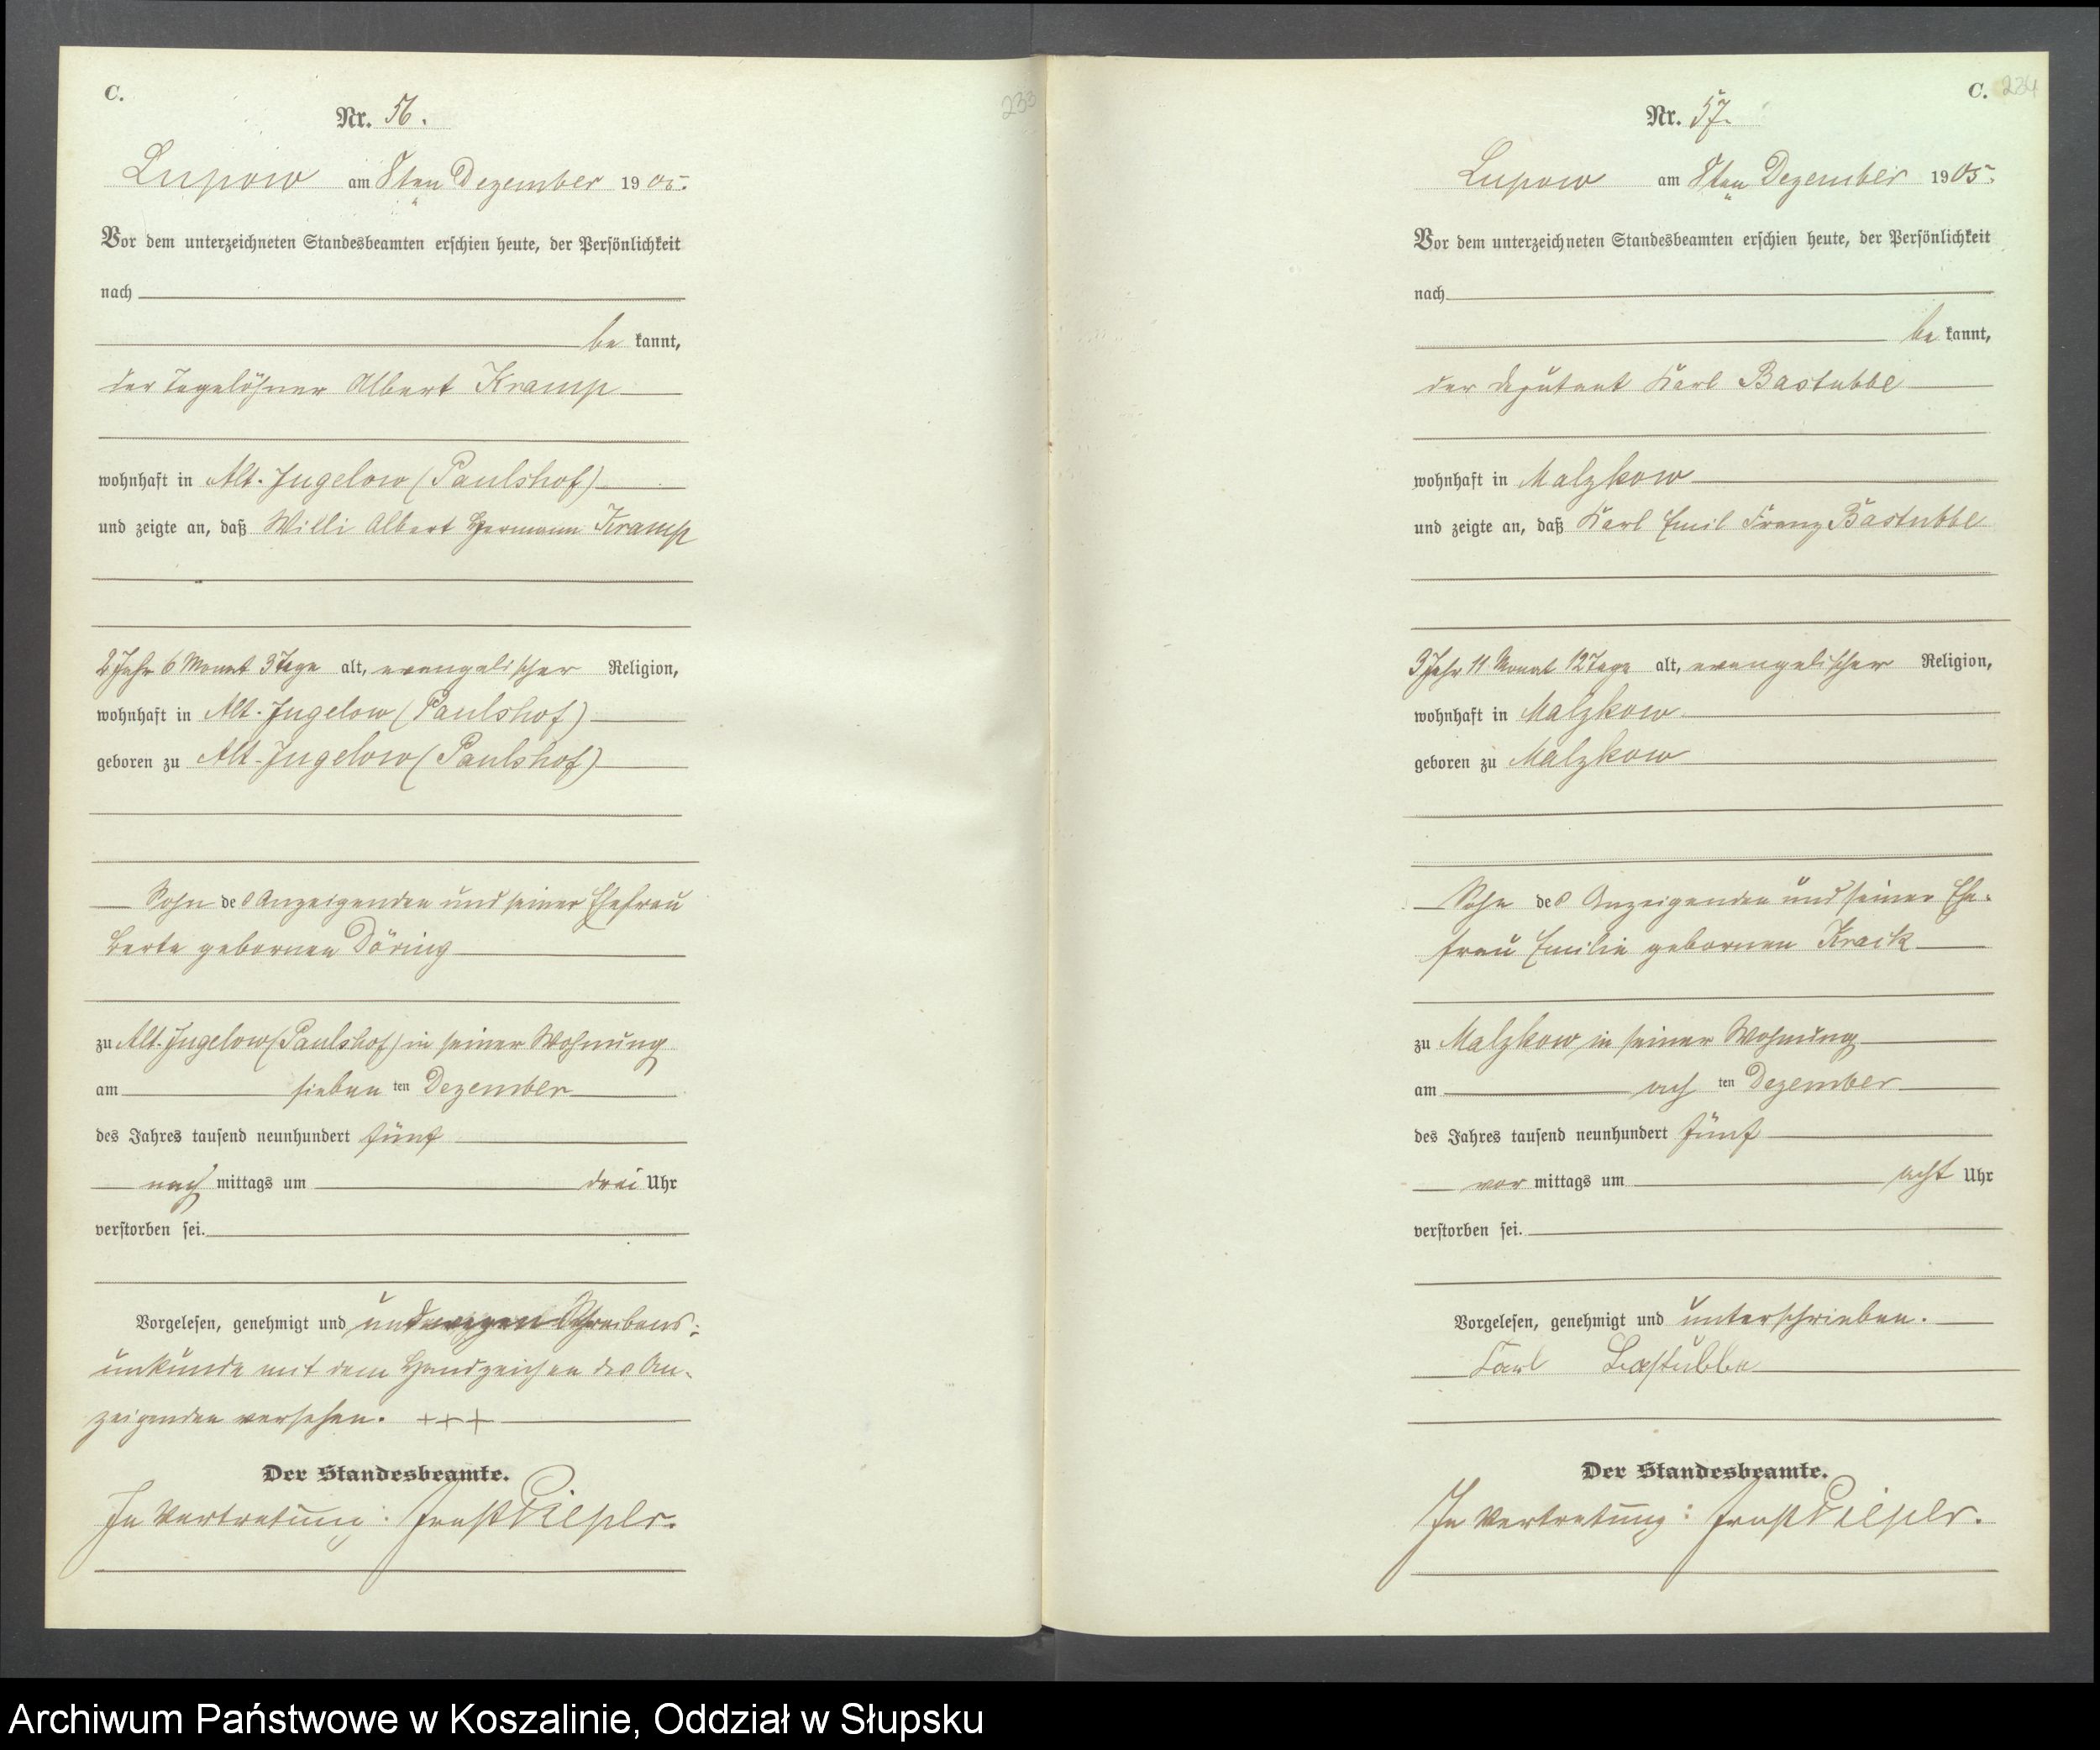 C.
233
Nr. 56.
Lupow am 8ten Dezember 1905.
Vor dem unterzeichneten Standesbeamten erschien heute, der Persönlichkeit
nach
be kannt,
der Tagelöhner Albert Kramp
wohnhaft in Alt-Jugelow (Paulshof)
und zeigte an, daß Willi Albert Hermann Kramp
2 Jahr 6 Monat 3 Tage alt, evangelischer Religion,
wohnhaft in Alt-Jugelow (Paulshof)
geboren zu Alt-Jugelow (Paulshof)
Sohn des Anzeigenden und seiner Ehefrau
Berta gebornen Döring
zu Alt-Jugelow (Paulshof) in seiner Wohnung
am sieben ten Dezember
des Jahres tausend neunhundert fünf
nach mittags um drei Uhr
verstorben sei.
Vorgelesen, genehmigt und und wegen Schreibens-
unkunde mit dem Handzeichen des An-
zeigenden versehen. +++
Der Standesbeamte.
In Vertretung: Ernst
C. 234
Nr. 57.
Lupow am 8ten Dezember 1905.
Vor dem unterzeichneten Standesbeamten erschien heute, der Persönlichkeit
nach
be kannt,
der Deputant Karl Bastubbe
wohnhaft in Malzkow
und zeigte an, daß Karl Emil Franz Bastubbe
3 Jahr 11 Monat 12 Tage alt, evangelischer Religion,
wohnhaft in Malzkow
geboren zu Malzkow
Sohn des Anzeigenden und seiner Ehe-
frau Emilie gebornen Krack
zu Malzkow in seiner Wohnung
am ach ten Dezember
des Jahres tausend neunhundert fünf
vor mittags um acht Uhr
verstorben sei.
Vorgelesen, genehmigt und unterschrieben.
Karl Bastubbe
Der Standesbeamte.
In Vertretung: Ernst
Archiwum Państwowe w Koszalinie, Oddział w Słupsku